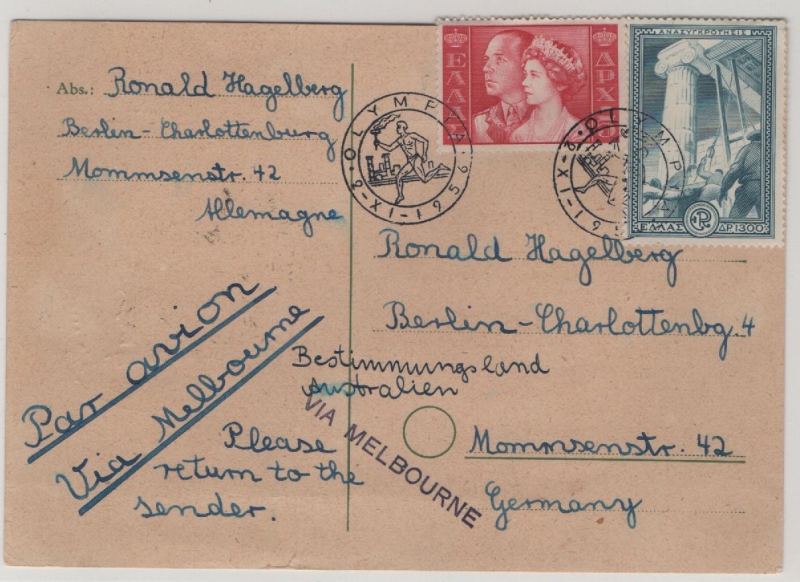 Abs.: Ronald Hagelberg
Berlin-Charlottenburg
Mommsenstr. 42
Allemagne
Par avion
Via Melbourne
Please
return to the
sender.
ΕΛΛΑΣ
ΔΡΧ
ΑΝΑΣΥΓΚΡΟΤΗΣΙΣ
ΕΛΛΑΣ ΔΡ.1300
OLYMPIA
2-XI-1956
OLYMPIA
2-XI-1956
Ronald Hagelberg
Berlin-Charlottenbg. 4
Bestimmungsland
Australien
VIA MELBOURNE
Mommsenstr. 42
Germany